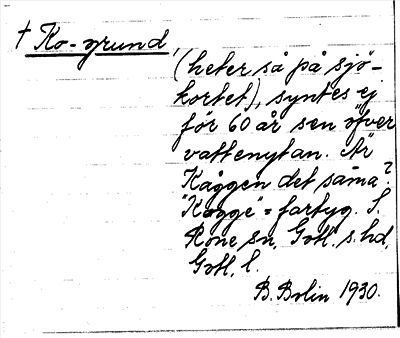 † Ko-grund,
(heter så på sjö-
kortet), syntes ej
för 60 år sen öfver
vattenytan. Är
Kåggen det sama?
"Kogge" = fartyg. S.
Rone sn, Gotl. s. hd,
Gotl. l.
B. Bolin 1930.